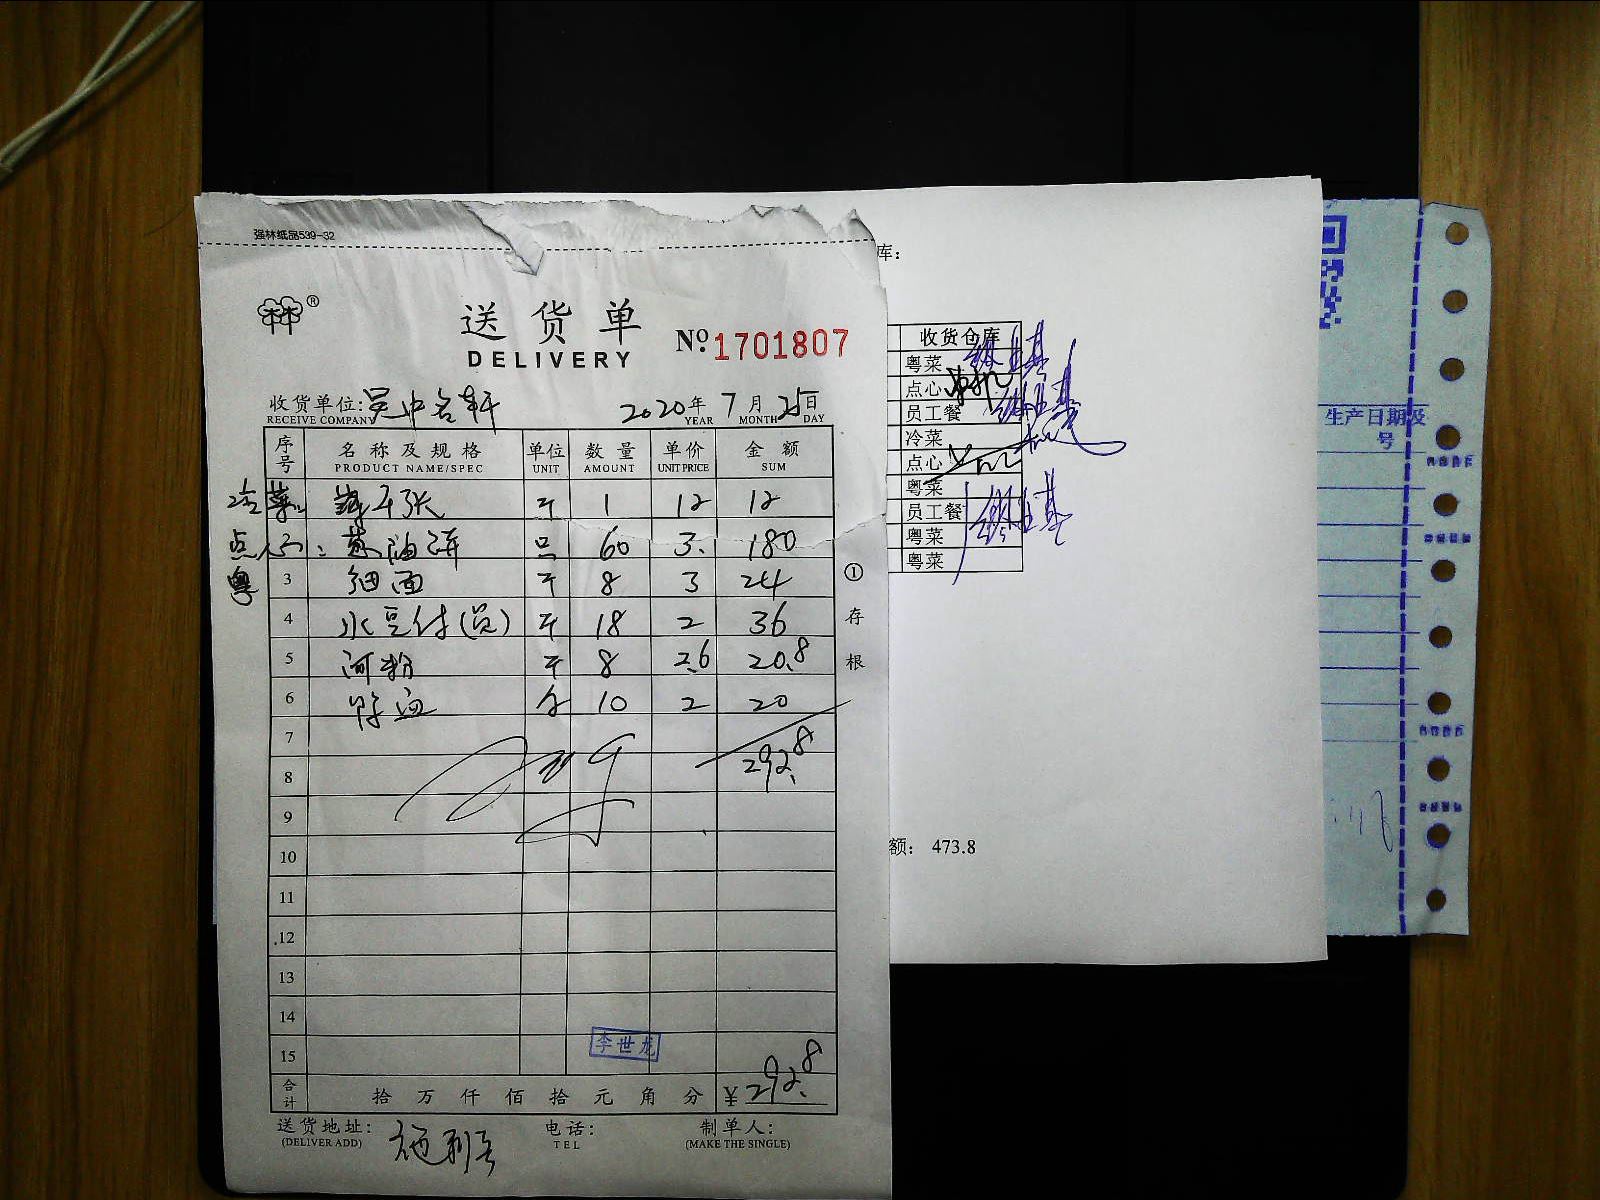 强林纸品539-32
®
送货单
DELIVERY
No. 1701807
收货单位: 吴中名轩 2020年 7月 25日
RECEIVE COMPANY YEAR MONTH DAY
序号 名称及规格 单位 数量 单价 金额
PRODUCT NAME/SPEC UNIT AMOUNT UNIT PRICE SUM
千张 斤 1 12 12
点心: 葱油饼 只 60 3. 180
粤 3 细面 斤 8 3 24
4 水豆付(员) 斤 18 2 36
5 河粉 斤 8 2.6 20.8
6 10 2 20
7
8 292.8
9
10
11
12
13
14
15
李世龙
合计 拾 万 仟 佰 拾 元 角 分 ¥292.8
送货地址: 电话: 制单人:
(DELIVER ADD) TEL (MAKE THE SINGLE)
①存根
库:
收货仓库
粤菜
点心
员工餐
冷菜
点心
粤菜
员工餐
粤菜
粤菜
额: 473.8
生产日期及
号